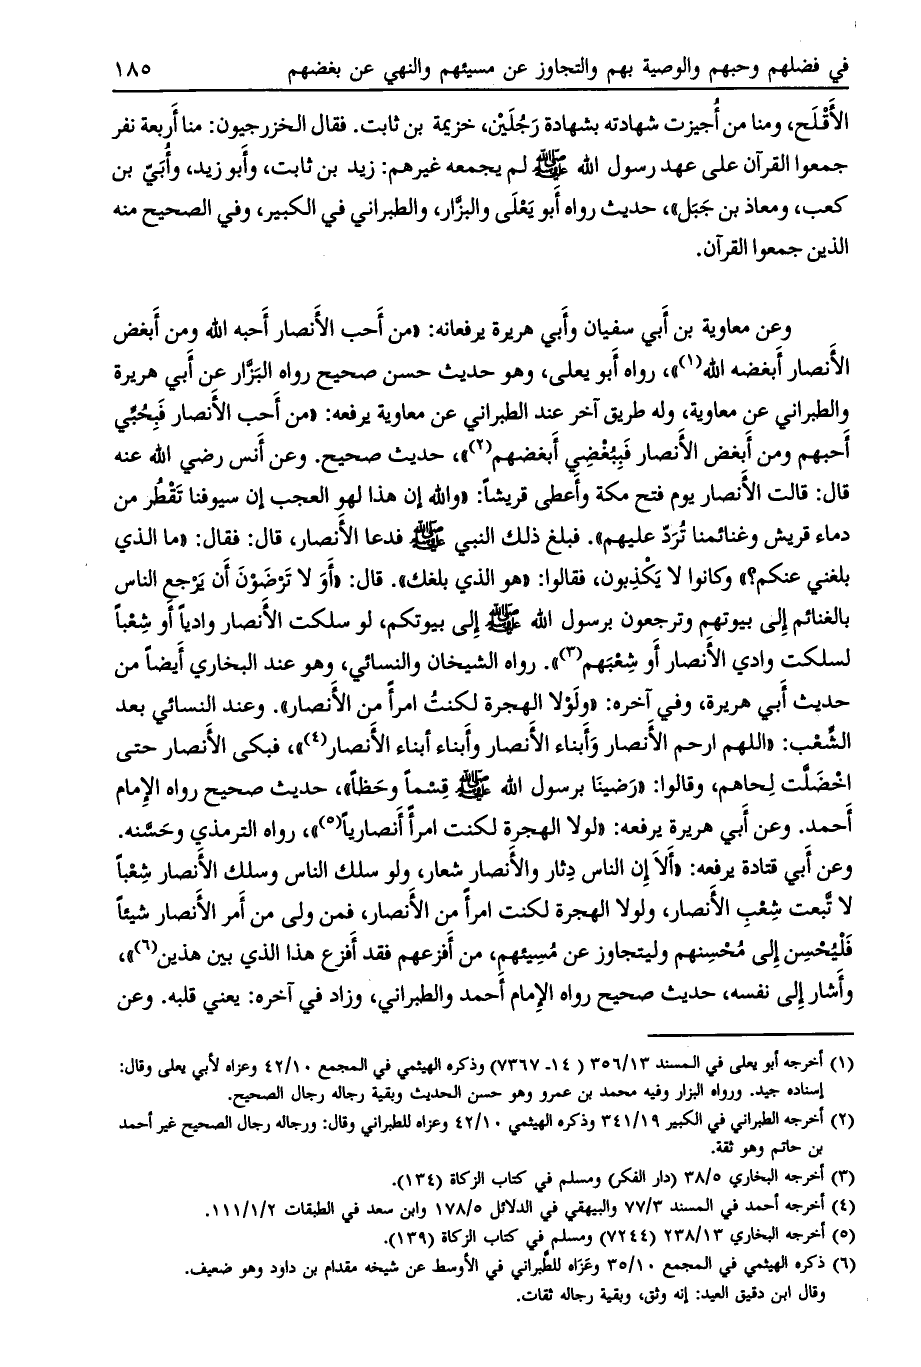 في فضلهم وحبهم والوصية بهم والتجاوز عن مسيئهم والنهي عن بغضهم ١٨٥
الأَقْلَح، ومنا من أُجيزت شهادته بشهادة رَجُلَيْن، خزيمة بن ثابت. فقال الخزرجيون: منا أَربعة نفر
جمعوا القرآن على عهد رسول الله ﷺ لم يجمعه غيرهم: زيد بن ثابت، وأَبو زيد، وأُبَيّ بن
كعب، ومعاذ بن جَبَل»، حديث رواه أَبو يَعْلَى والبزَّار، والطبراني في الكبير، وفي الصحيح منه
الذين جمعوا القرآن.
وعن معاوية بن أَبي سفيان وأَبي هريرة يرفعانه: «من أَحب الأَنصار أَحبه الله ومن أَبغض
الأَنصار أَبغضه الله(١)»، رواه أَبو يعلى، وهو حديث حسن صحيح رواه البَزَّار عن أَبي هريرة
والطبراني عن معاوية، وله طريق آخر عند الطبراني عن معاوية يرفعه: «من أَحب الأَنصار فَبِحُبِّي
أَحبهم ومن أَبغض الأَنصار فَبِبُغْضِي أَبغضهم(٢)»، حديث صحيح. وعن أَنس رضي الله عنه
قال: قالت الأَنصار يوم فتح مكة وأَعطى قريشاً: «والله إن هذا لهو العجب إن سيوفنا تَقْطُر من
دماء قريش وغنائمنا تُرَدّ عليهم». فبلغ ذلك النبي ﷺ فدعا الأَنصار، قال: فقال: «ما الذي
بلغني عنكم؟» وكانوا لا يَكْذِبون، فقالوا: «هو الذي بلغك». قال: «أَوَ لا تَرْضَوْنَ أَن يَرْجع الناس
بالغنائم إِلى بيوتهم وترجعون برسول الله ﷺ إِلى بيوتكم، لو سلكت الأَنصار وادياً أَو شِعْباً
لسلكت وادي الأَنصار أَو شِعْبَهم(٣)». رواه الشيخان والنسائي، وهو عند البخاري أَيضاً من
حديث أَبي هريرة، وفي آخره: «ولَوْلا الهجرة لكنتُ امرأً من الأَنصار». وعند النسائي بعد
الشِّعْب: «اللهم ارحم الأَنصار وَأَبناء الأَنصار وأَبناء أبناء الأَنصار(٤)»، فبكى الأَنصار حتى
اخْضَلَّت لِحاهم، وقالوا: «رَضينَا برسول الله ﷺ قِسْماً وحَظاً»، حديث صحيح رواه الإِمام
أَحمد. وعن أَبي هريرة يرفعه: «لولا الهجرة لكنت امرأً أَنصارياً(٥)»، رواه الترمذي وحَسَّنه.
وعن أَبي قتادة يرفعه: «أَلاَ إِن الناس دِثار والأَنصار شعار، ولو سلك الناس وسلك الأَنصار شِعْباً
لا تَّبعت شِعْبِ الأَنصار، ولولا الهجرة لكنت امرأً من الأَنصار، فمن ولى من أَمر الأَنصار شيئاً
فَلْيُحْسِن إِلى مُحْسِنهم وليتجاوز عن مُسِيئهم، من أَفزعهم فقد أَفزع هذا الذي بين هذين(٦)»،
وأَشار إِلى نفسه، حديث صحيح رواه الإِمام أَحمد والطبراني، وزاد في آخره: يعني قلبه. وعن
(١) أخرجه أبو يعلى في المسند ٣٥٦/١٣ ( ١٤ـ ٧٣٦٧) وذكره الهيثمي في المجمع ٤٢/١٠ وعزاه لأبي يعلى وقال:
إسناده جيد. ورواه البزار وفيه محمد بن عمرو وهو حسن الحديث وبقية رجاله رجال الصحيح.
(٢) أخرجه الطبراني في الكبير ٣٤١/١٩ وذكره الهيثمي ٤٢/١٠ وعزاه للطبراني وقال: ورجاله رجال الصحيح غير أحمد
بن حاتم وهو ثقة.
(٣) أخرجه البخاري ٣٨/٥ (دار الفكر) ومسلم في كتاب الزكاة (١٣٤).
(٤) أخرجه أحمد في المسند ٧٧/٣ والبيهقي في الدلائل ١٧٨/٥ وابن سعد في الطبقات ١١١/١/٢.
(٥) أخرجه البخاري ٢٣٨/١٣ (٧٢٤٤) ومسلم في كتاب الزكاة (١٣٩).
(٦) ذكره الهيثمي في المجمع ٣٥/١٠ وعَزَاه للطَّبراني في الأوسط عن شيخه مقدام بن داود وهو ضعيف.
وقال ابن دقيق العيد: إنه وثق، وبقية رجاله ثقات.